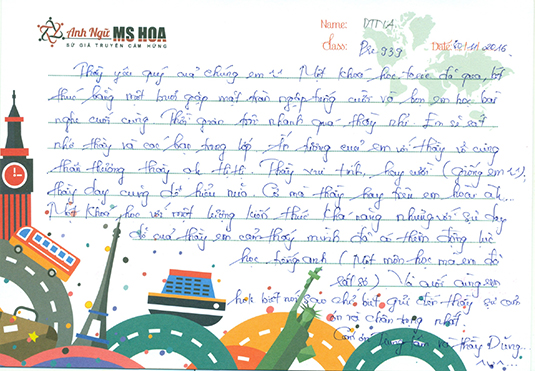 Anh Ngữ MS HOA
SỨ GIẢ TRUYỀN CẢM HỨNG
Name: VTT LA
Class: Pre 939 Date: 12/11/2016
Thầy yêu quý của chúng em :) Một khoá học nữa đã qua, kết
thúc bằng một buổi gặp mặt tràn ngập tiếng cười và bọn em học bài
nghe cuối cùng. Thời gian trôi nhanh quá thầy nhỉ. Em sẽ rất
nhớ thầy và các bạn trong lớp. Ấn tượng của em với thầy vô cùng
thân thương thầy ah hihi. Thầy vui tính, hay cười (giống em :)),
thầy dạy cũng dễ hiểu nữa. Có mà thầy hay trêu em hoài ah...
Một khoá học với một lượng kiến thức khá nặng nhưng với sự dạy
dỗ của thầy em cảm thấy mình đã có thêm động lực
học tiếng anh (Một môn học mà em đã
rất sợ) Và cuối cùng em
không biết nói sao chỉ biết gửi đến thầy sự cảm
ơn và chân trọng nhất
Cảm ơn trung tâm và thầy Dũng...